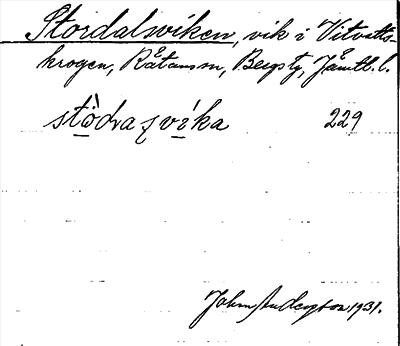 Stordalsviken, vik i Vitvatts-
krogen, Råtans sn, Bergs tg, Jämtl. l.
stòdrasvíka 229
John Anderzson 1931.